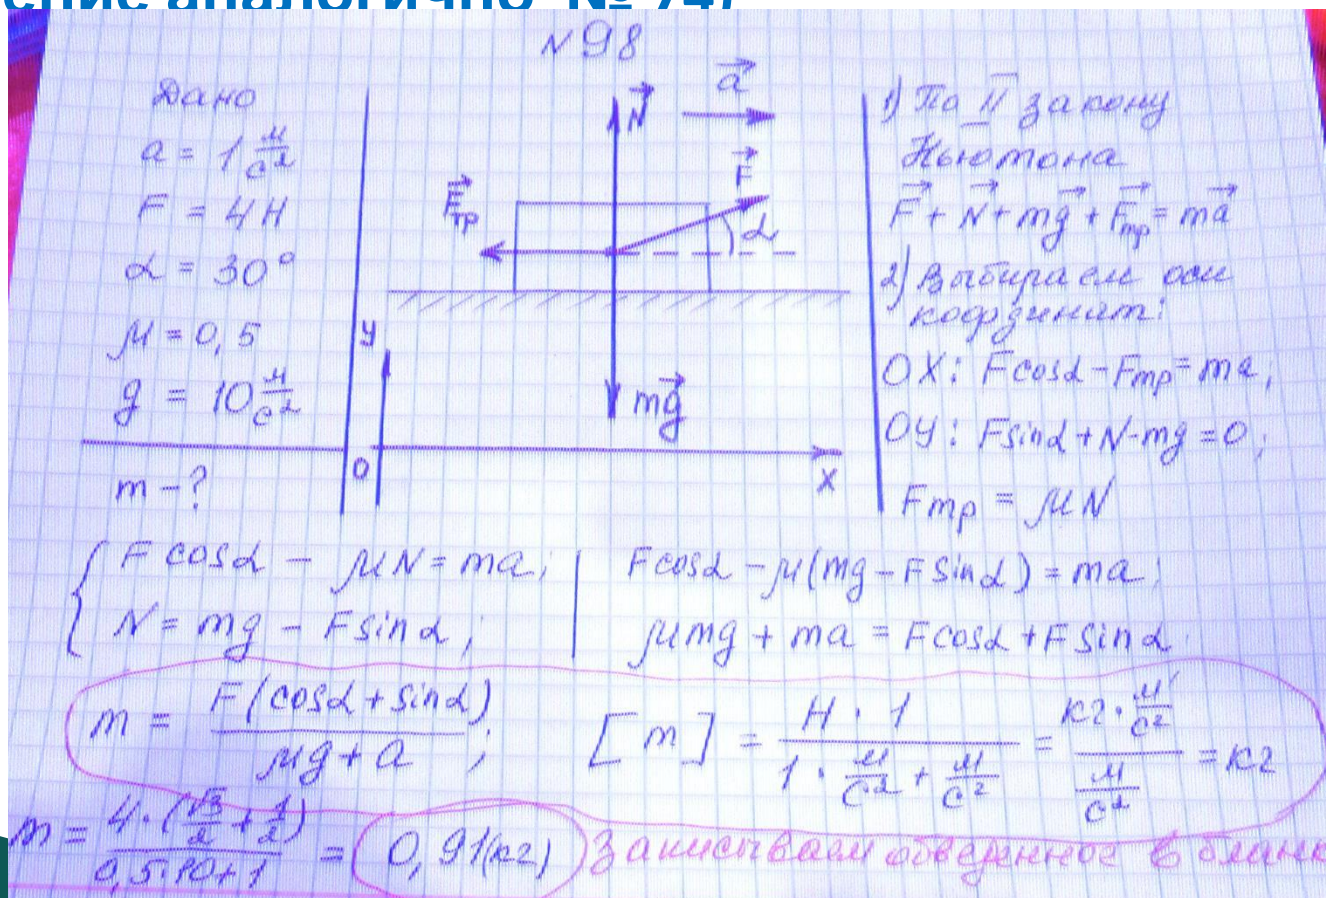 спис аналогично № 747
N98
Дано
a = 1 м/с²
F = 4Н
α = 30°
μ = 0,5
g = 10 м/с²
m - ?
N
a
F
Fтр
α
mg
y
0
x
1) По II закону
Ньютона
F + N + mg + Fтр = ma
2) Выбираем оси
координат:
OX: Fcosα - Fтр = ma;
OY: Fsinα + N - mg = 0;
Fтр = μN
F cosα - μN = ma;
N = mg - Fsinα;
Fcosα - μ(mg - Fsinα) = ma;
μmg + ma = Fcosα + Fsinα.
m = F(cosα + sinα) / μg + a ; [m] = Н · 1 / 1 · м/с² + м/с² = кг · м/с² / м/с² = кг
m = 4 · (√3/2 + 1/2) / 0,5·10+1 = 0,91(кг) Записываем обведенное в бланк